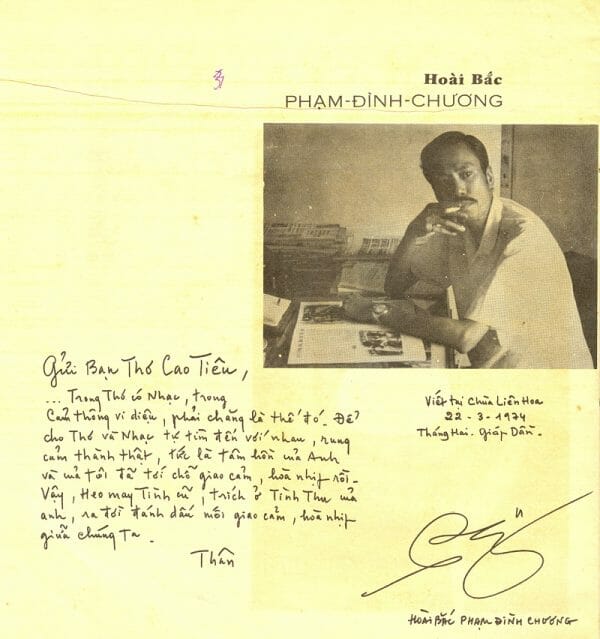 Hoài Bắc
PHẠM-ĐÌNH-CHƯƠNG
Gửi Bạn Thơ Cao Tiêu,
... Trong Thơ có Nhạc, trong
Cảm thông vi diệu, phải chăng là thế đó. Để
cho Thơ và Nhạc tự tìm đến với nhau, rung
cảm thành thật, tức là tâm hồn của Anh
và của tôi đã tới chỗ giao cảm, hoà nhịp rồi.
Vậy, Heo may Tình cũ, trích ở Tình Thu của
anh, ra đời đánh dấu mối giao cảm, hoà nhịp
giữa chúng Ta.
Thân
Viết tại Chùa Liên Hoa
22 - 3 - 1974
Tháng Hai - Giáp Dần -
HOÀI BẮC PHẠM ĐÌNH CHƯƠNG